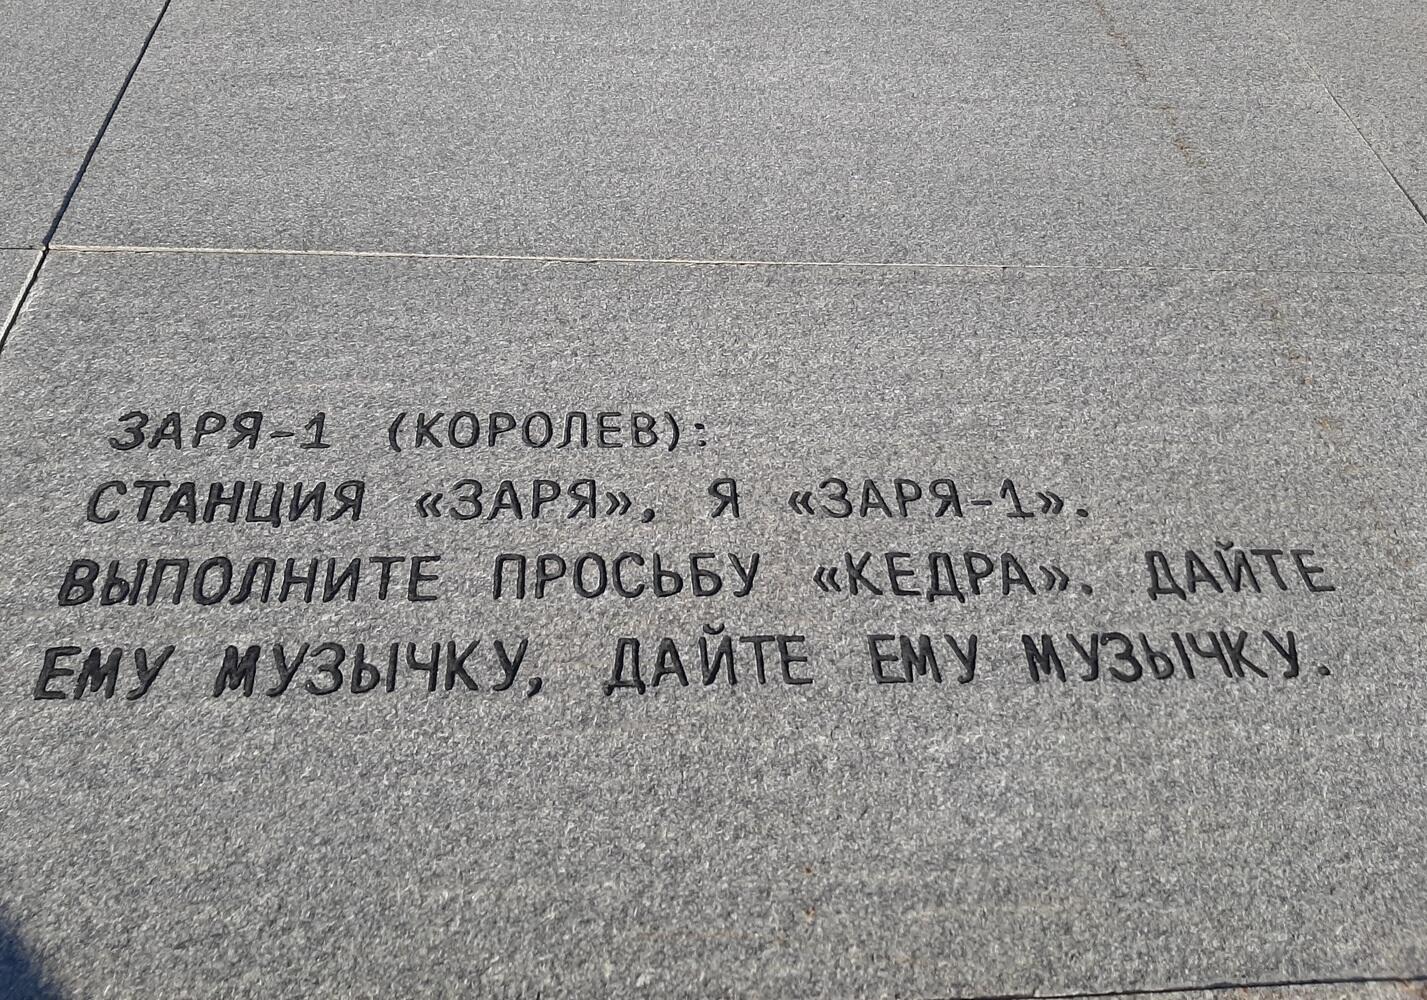 ЗАРЯ-1 (КОРОЛЕВ):
СТАНЦИЯ «ЗАРЯ», Я «ЗАРЯ-1».
ВЫПОЛНИТЕ ПРОСЬБУ «КЕДРА». ДАЙТЕ
ЕМУ МУЗЫЧКУ, ДАЙТЕ ЕМУ МУЗЫЧКУ.